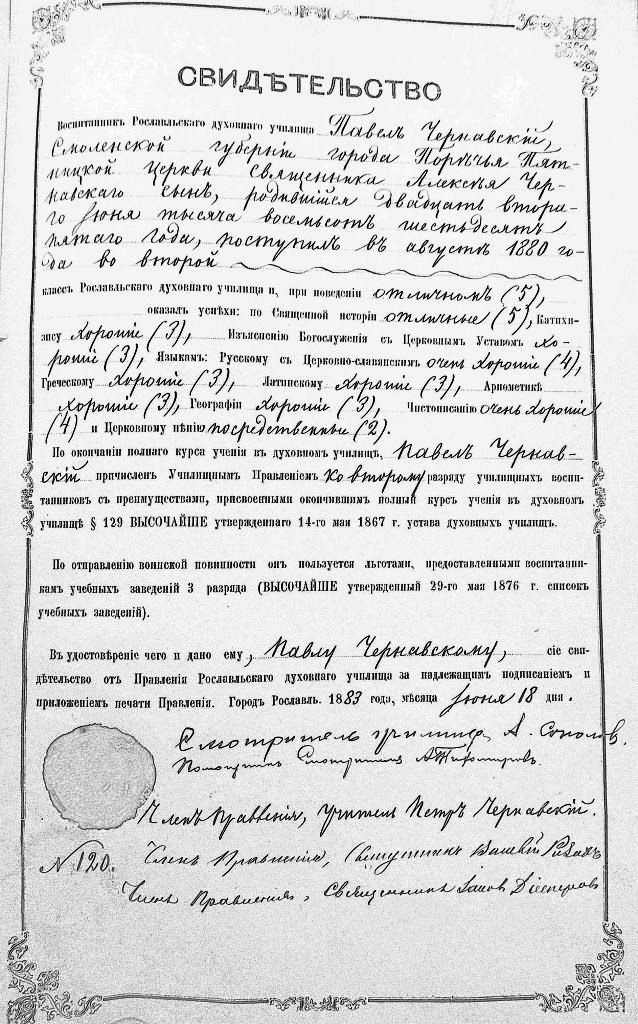 СВИДѢТЕЛЬСТВО
Воспитанникъ Рославльскаго духовнаго училища Павелъ Чернавскій,
Смоленской губерніи города Порѣчья Пят-
ницкой церкви священника Алексѣя Чер-
навскаго сынъ, родившійся двадцать втора-
го Іюня тысяча восемьсотъ шестьдесятъ
пятаго года, поступилъ въ августѣ 1880 го-
да во второй
классъ Рославльскаго духовнаго училища и, при поведеніи отличномъ (5),
оказалъ успѣхи: по Священной исторіи отличные (5), Катихи-
зису хорошіе (3), Изъясненію Богослуженія съ Церковнымъ Уставомъ хо-
рошіе (3), Языкамъ: Русскому съ Церковно-славянскимъ очень хорошіе (4),
Греческому хорошіе (3), Латинскому хорошіе (3), Ариѳметикѣ
хорошіе (3), Географіи хорошіе (3), Чистописанію очень хорошіе
(4) и Церковному пѣнію посредственные (2).
По окончаніи полнаго курса ученія въ духовномъ училищѣ, Павелъ Чернав-
скій причисленъ Училищнымъ Правленіемъ ко второму разряду училищныхъ воспи-
танниковъ съ преимуществами, присвоенными окончившимъ полный курсъ ученія въ духовномъ
училищѣ § 129 ВЫСОЧАЙШЕ утвержденнаго 14-го мая 1867 г. устава духовныхъ училищъ.
По отправленію воинской повинности онъ пользуется льготами, предоставленными воспитанни-
камъ учебныхъ заведеній 3 разряда (ВЫСОЧАЙШЕ утвержденный 29-го мая 1876 г. списокъ
учебныхъ заведеній).
Въ удостовѣреніе чего и дано ему, Павлу Чернавскому, сіе сви-
дѣтельство отъ Правленія Рославльскаго духовнаго училища за надлежащимъ подписаніемъ и
приложеніемъ печати Правленія. Городъ Рославль. 1883 года, мѣсяца Іюня 18 дня.
Смотритель училища А. Соколовъ.
Помощникъ Смотрителя А. Тихомировъ.
Членъ Правленія, учитель Петръ Чернавскій.
№ 120. Членъ Правленія, Священникъ
Членъ Правленія, Священникъ Іаковъ